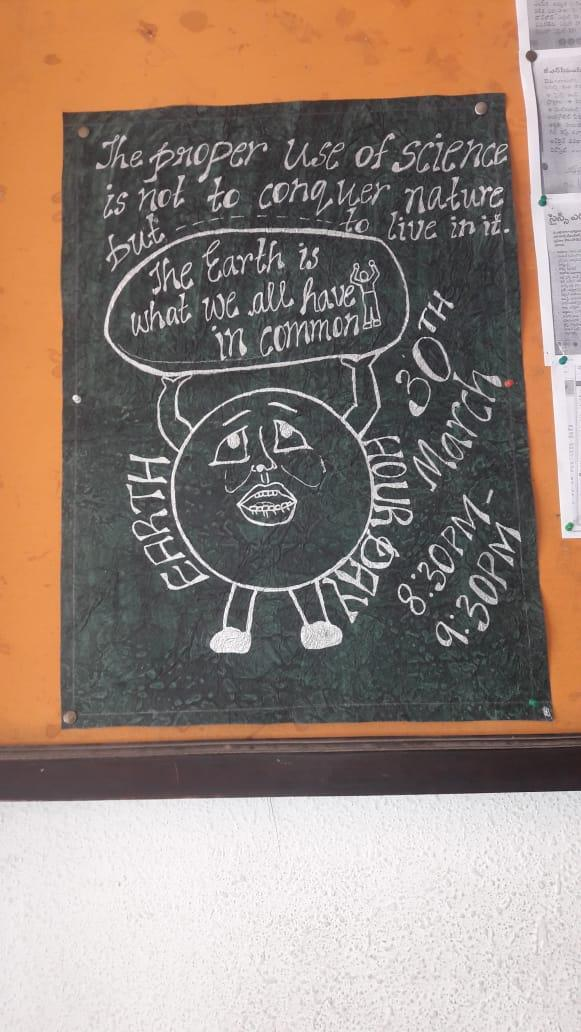 The proper use of science
is not to conquer nature
but - - - - - - - to live in it.
The Earth is
what we all have
in common
EARTH HOUR DAY
30TH
March
8:30PM-
9:30PM